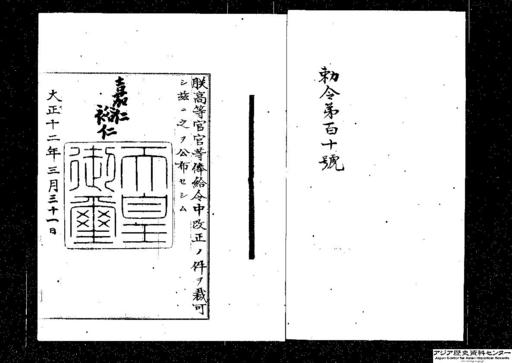 勅令第百十號
朕高等官官等俸給令中改正ノ件ヲ裁可
シ茲ニ之ヲ公布セシム
嘉仁
裕仁
天皇
御璽
大正十二年三月三十一日
アジア歴史資料センター
Japan Center for Asian Historical Records